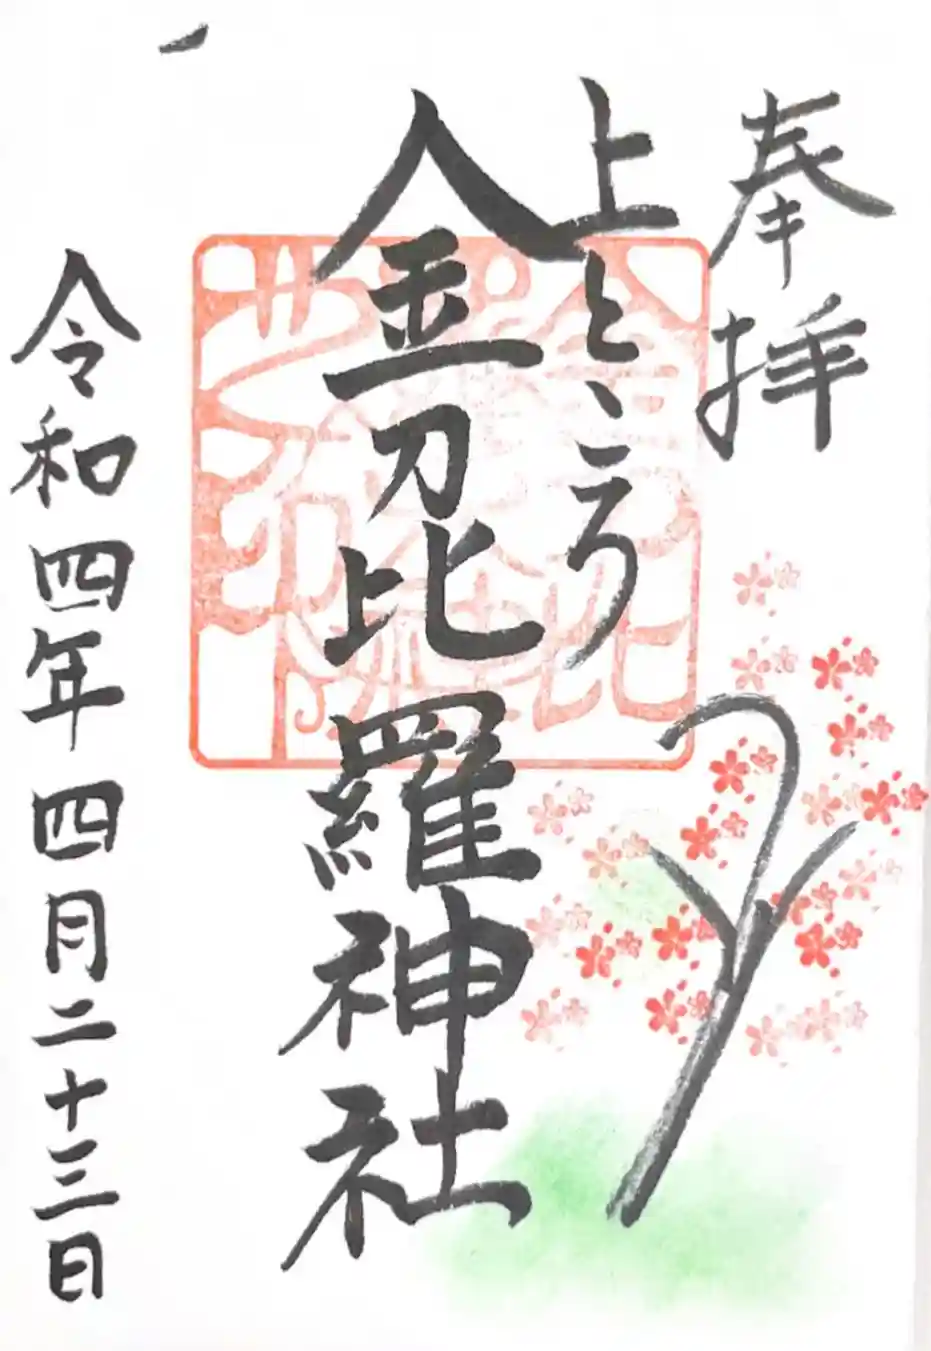 奉拝
上ところ
金刀比羅神社
令和四年四月二十三日